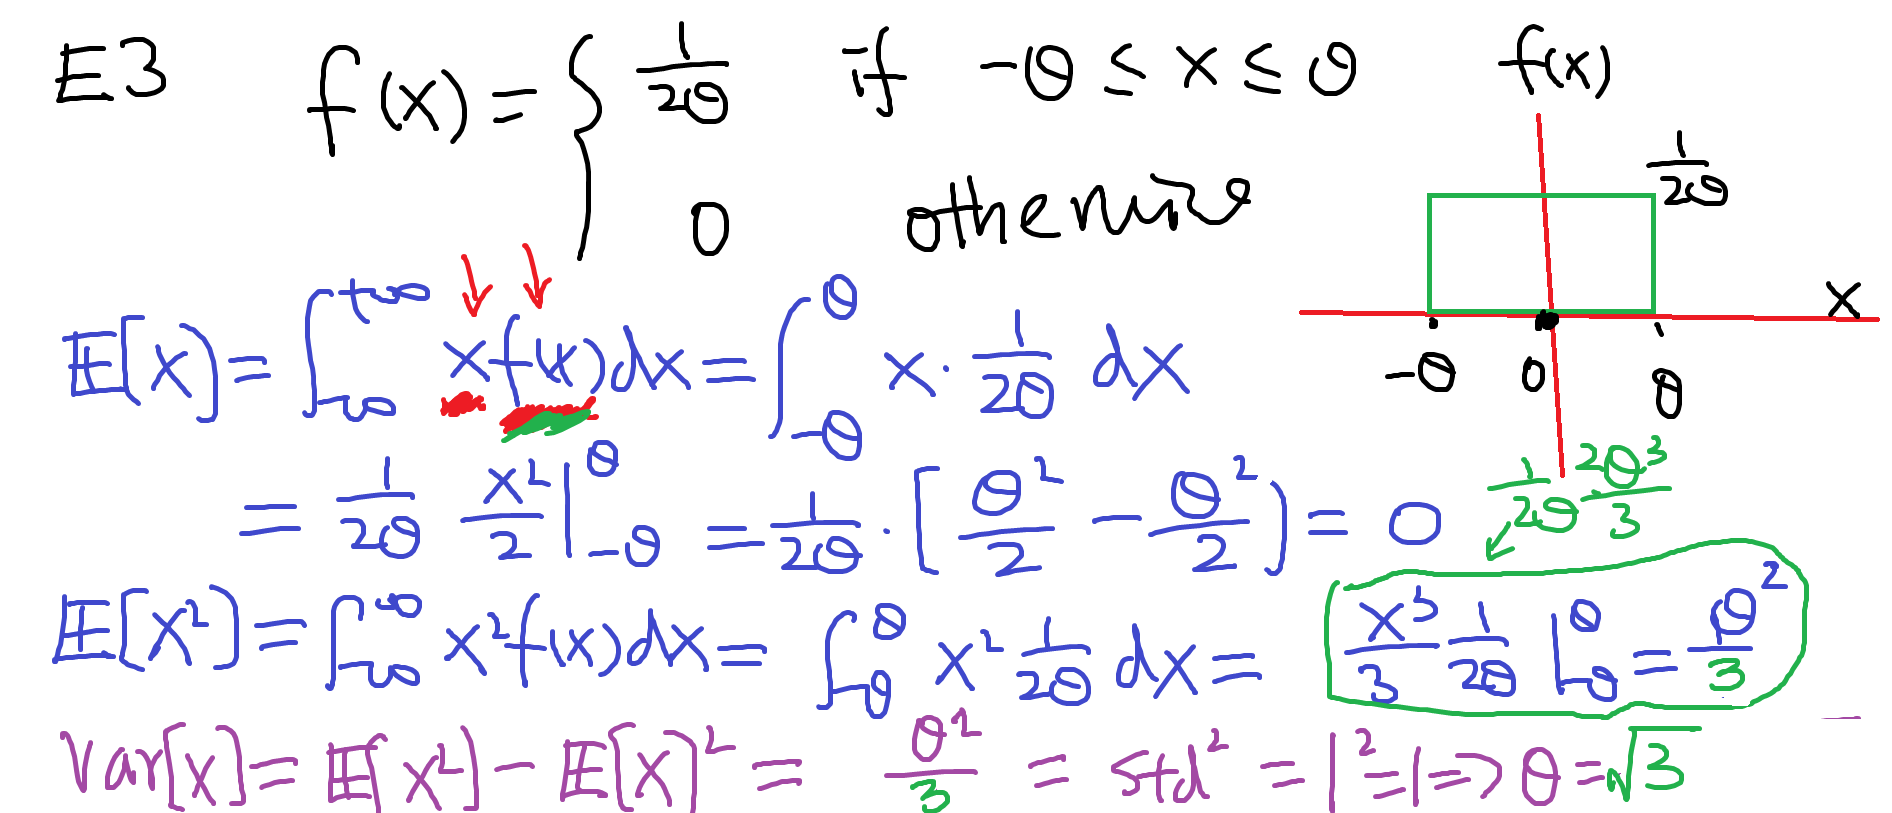 E3 f(x) = { 1/2θ if -θ ≤ x ≤ θ
0 otherwise
f(x)
1/2θ
x
-θ 0 θ
E[x] = ∫_{-∞}^{+∞} x f(x) dx = ∫_{-θ}^{θ} x · 1/2θ dx
= 1/2θ x²/2 |_{-θ}^{θ} = 1/2θ · [θ²/2 - θ²/2] = 0
1/2θ · 2θ³/3
E[x²] = ∫_{-∞}^{∞} x² f(x) dx = ∫_{-θ}^{θ} x² 1/2θ dx = x³/3 1/2θ |_{-θ}^{θ} = θ²/3
Var[x] = E[x²] - E[x]² = θ²/3 = std² = 1² = 1 => θ = √3